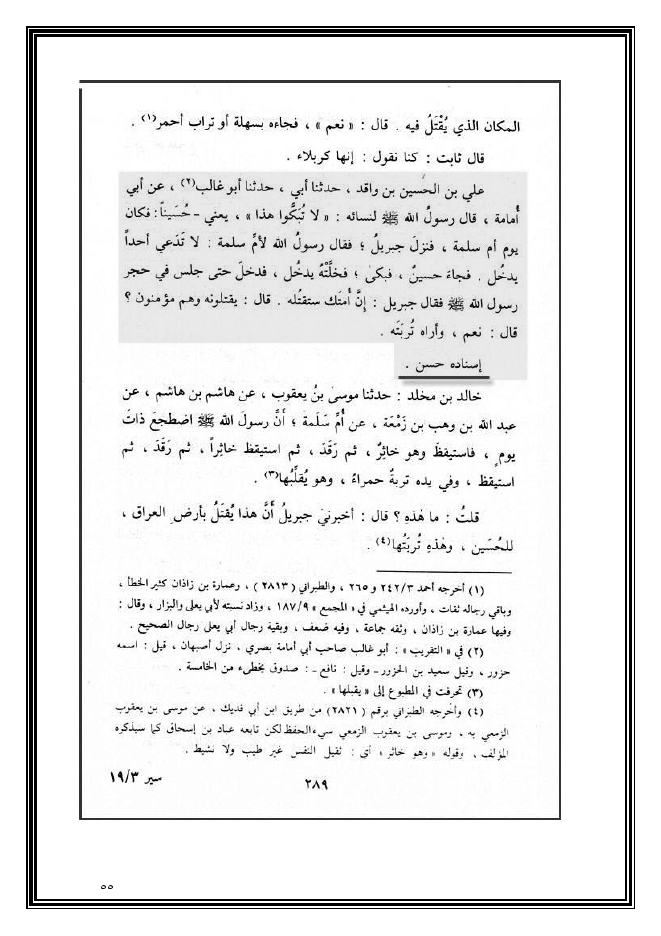 المكان الذي يُقْتَلُ فيه . قال : « نعم » ، فجاءه بسهلة أو تراب أحمر(١) .
قال ثابت : كنا نقول : إنها كربلاء .
علي بن الحُسين بن واقد ، حدثنا أبي ، حدثنا أبو غالب(٢) ، عن أبي
أُمامة ، قال رسولُ الله ﷺ لنسائه : « لا تُبَكُّوا هذا » ، يعني - حُسَيناً : فكان
يوم أم سلمة ، فنزلَ جبريلُ ؛ فقال رسولُ الله لأمِّ سلمة : لا تَدَعي أحداً
يدخُل . فجاءَ حسينٌ ، فبكى ؛ فخلَّتْهُ يدخُل ، فدخلَ حتى جلس في حجر
رسول الله ﷺ فقال جبريل : إنَّ أُمتَك ستقتُله . قال : يقتلونه وهم مؤمنون ؟
قال : نعم ، وأراه تُربَتَه .
إسناده حسن .
خالد بن مخلد : حدثنا موسىٰ بنُ يعقوب ، عن هاشم بن هاشم ، عن
عبد الله بن وهب بن زَمْعَة ، عن أُم سَلَمة ؛ أَنَّ رسولَ الله ﷺ اضطجعَ ذاتَ
يومٍ ، فاستيقظَ وهو خاثِرٌ ، ثم رَقَدَ ، ثم استيقظ خاثِراً ، ثم رَقَدَ ، ثم
استيقظ ، وفي يده تربةٌ حمراءُ ، وهو يُقلِّبُها(٣) .
قلتُ : ما هٰذهِ ؟ قال : أخبرني جبريلُ أَنَّ هذا يُقتَلُ بأرضِ العراق ،
للحُسَين ، وهٰذهِ تُربَتُها(٤) .
(١) أخرجه أحمد ٢٤٢/٣ و ٢٦٥ ، والطبراني ( ٢٨١٣ ) ، وعمارة بن زاذان كثير الخطأ ،
وباقي رجاله ثقات ، وأورده الهيثمي في « المجمع » ١٨٧/٩ ، وزاد نسبته لأبي يعلى والبزار ، وقال :
وفيها عمارة بن زاذان ، وثقه جماعة ، وفيه ضعف ، وبقية رجال أبي يعلى رجال الصحيح .
(٢) في « التقريب » : أبو غالب صاحب أبي أمامة بصري ، نزل أصبهان ، قيل : اسمه
حزور ، وقيل سعيد بن الحزور - وقيل : نافع - : صدوق يخطىء من الخامسة .
(٣) تحرفت في المطبوع إلى « يقبلها » .
(٤) وأخرجه الطبراني برقم ( ٢٨٢١ ) من طريق ابن أبي فديك ، عن موسى بن يعقوب
الزمعي به ، وموسى بن يعقوب الزمعي سيء الحفظ لكن تابعه عباد بن إسحاق كما سيذكره
المؤلف ، وقوله « وهو خاثر » أي : ثقيل النفس غير طيب ولا نشيط .
٢٨٩
سير ١٩/٣
٥٥